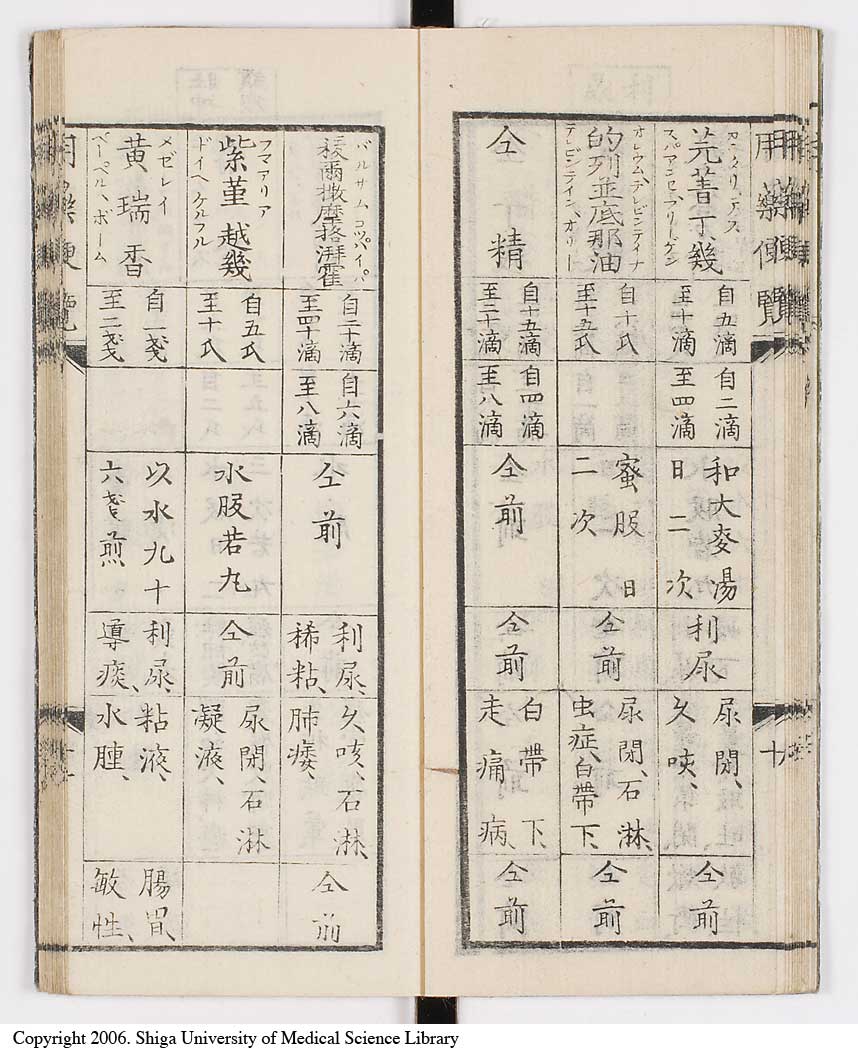 用藥便覽
カンタリ、アス
芫菁丁幾
スパアンセ、フリーゲン
自五滴
至十滴
自二滴
至四滴
和大麥湯
日二次
利尿
尿閉、
久咳、
仝前
オレウム、テレビンティナ
的列並底那油
テレビンテイン、オリー
自十氏
至十五氏
蜜服日
二次
仝前
尿閉、石淋、
虫症、白帶下、
仝前
仝精
自十五滴
至二十滴
自四滴
至八滴
仝前
仝前
白帶下、
走痛病、
仝前
十
バルサム、コッパイ、バ
拔爾撒摩格湃霍
自二十滴
至四十滴
自六滴
至八滴
仝前
利尿、
稀粘、
久咳、石淋、
肺痿、
仝前
フマアリア
紫菫越幾
ドイヘ、ケルフル
自五氏
至十氏
水服若丸
仝前
尿閉、石淋
凝液、
メゼレイ
黄瑞香
ペーペル、ボーム
自一戔
至二戔
以水九十
六戔煎
利尿、
導痰、
粘液、
水腫、
腸胃、
敏性、
用藥便覽